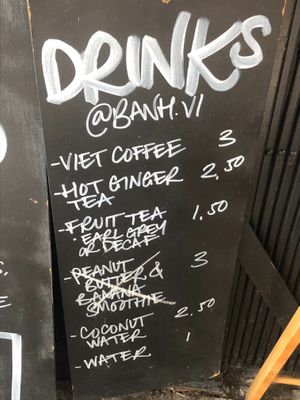 DRINKS
@BANH.VI
- VIET COFFEE 3
- HOT GINGER TEA 2.50
- FRUIT TEA 1.50
- EARL GREY
OR DECAF
- PEANUT 3
BUTTER &
BANANA
SMOOTHIE
- COCONUT 2.50
WATER
- WATER 1